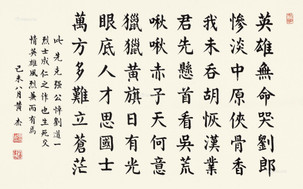 英雄無命哭劉郎
慘淡中原俠骨香
我未吞胡恢漢業
君先懸首看吳荒
啾啾赤子天何意
獵獵黃旗日有光
眼底人才思國士
萬方多難立蒼茫
此先克强公悼劉道一
烈士成仁之作也生死交
情英雄風烈兼而有焉
己未八月黃杰